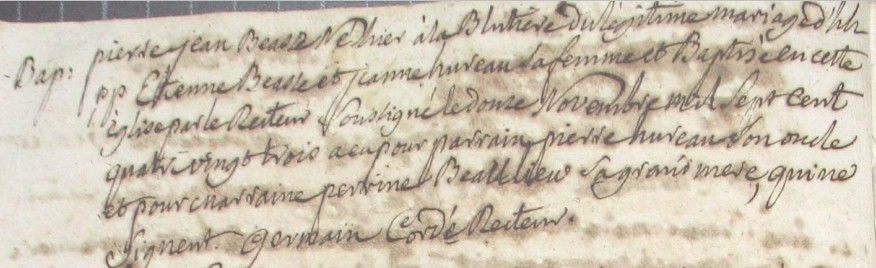 Bap: pierre jean Beasse Né hier à la Blutière du légitime mariage d'hh
pp Etienne Beasse et jeanne hureau Sa femme et Baptisé en cette
église par le Recteur Soussigné le douze Novembre mil Sept cent
quatre vingt trois a eu pour parrain pierre hureau Son oncle
et pour marraine perrine Beaulieu Sa grand mere, qui ne
Signent. Germain Cordé Recteur.